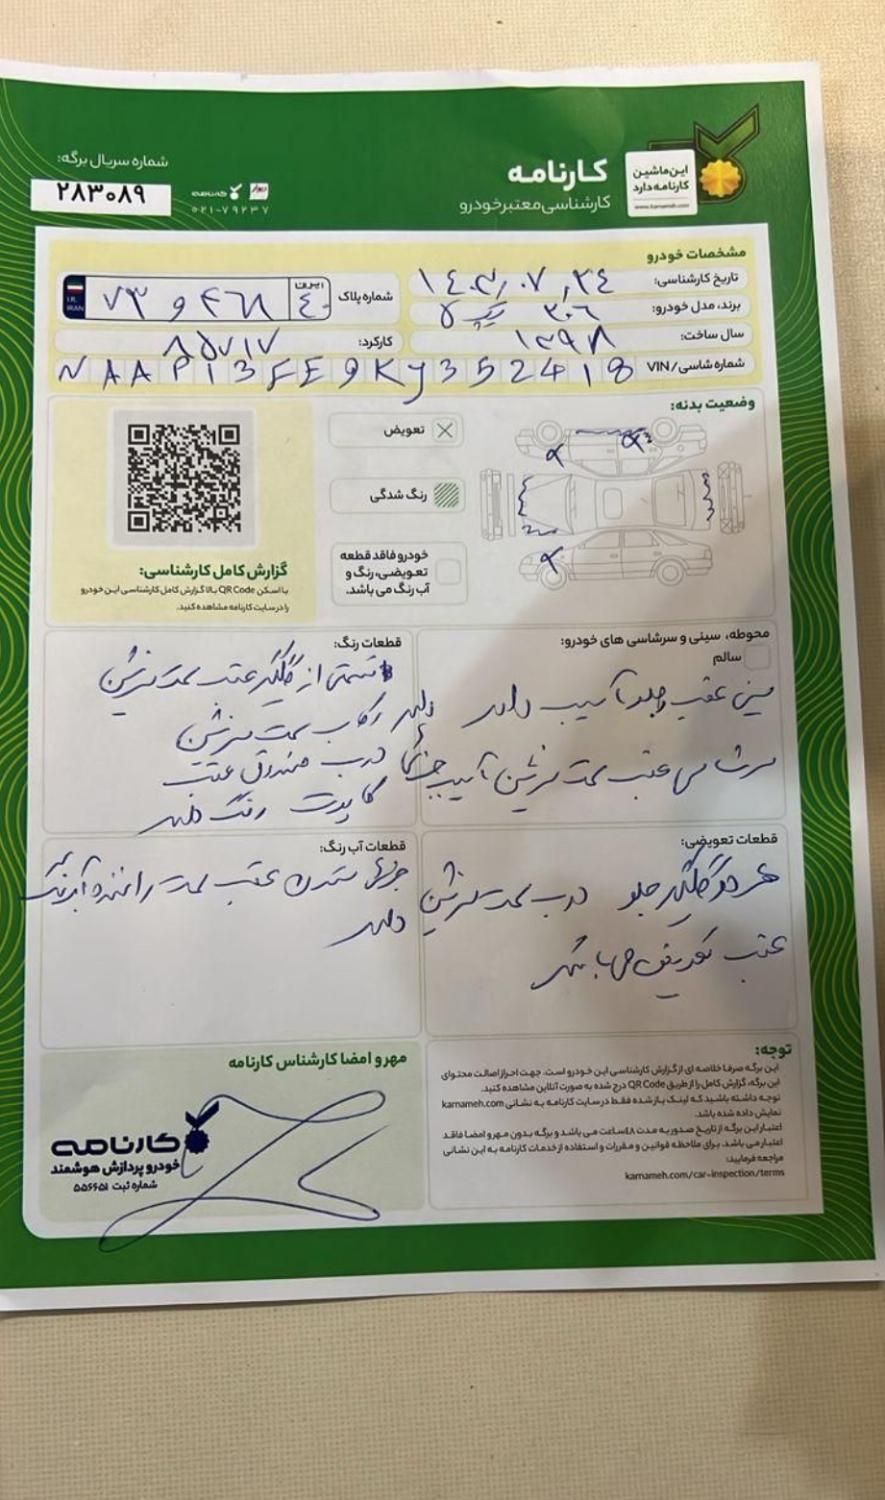 شماره سریال برگه:
۲۸۳۰۸۹
دیوار کارنامه
۰۲۱-۷۹۲۳۷
کارنامه
کارشناسی معتبر خودرو
این ماشین
کارنامه دارد
www.karnameh.com
مشخصات خودرو
تاریخ کارشناسی: ۲۴
برند، مدل خودرو:
سال ساخت: ۱۳۹۸
شماره پلاک ۷۳ و ۴۶۸ ایران ۴۰
I.R. IRAN
کارکرد: ۸۵۷۱۷
شماره شاسی/ VIN NAAP13FE9KJ352418
وضعیت بدنه:
تعویض
رنگ شدگی
خودرو فاقد قطعه
تعویضی، رنگ و
آب رنگ می باشد.
گزارش کامل کارشناسی:
با اسکن QR Code بالا گزارش کامل کارشناسی این خودرو
را در سایت کارنامه مشاهده کنید.
محوطه، سینی و سرشاسی های خودرو:
سالم
سینی عقب و جلو آسیب دارد
سرشاسی عقب سمت سرنشین آسیب جزئی دارد
قطعات رنگ:
قسمتی از گلگیر عقب سمت سرنشین
رکاب سمت سرنشین
درب صندوق عقب
کاپوت رنگ دارد
قطعات تعویضی:
هر دو گلگیر جلو درب سمت سرنشین
عقب تعویض میباشد
قطعات آب رنگ:
ستون عقب سمت راننده آبرنگ
دارد
توجه:
این برگه صرفا خلاصه ای از گزارش کارشناسی این خودرو است. جهت احراز اصالت محتوای
این برگه، گزارش کامل را از طریق QR Code درج شده به صورت آنلاین مشاهده کنید.
توجه داشته باشید که لینک باز شده فقط در سایت کارنامه به نشانی karnameh.com
نمایش داده شده باشد.
اعتبار این برگه از تاریخ صدور به مدت ۴۸ ساعت می باشد و برگه بدون مهر و امضا فاقد
اعتبار می باشد. برای ملاحظه قوانین و مقررات و استفاده از خدمات کارنامه به این نشانی
مراجعه فرمایید:
karnameh.com/car-inspection/terms
مهر و امضا کارشناس کارنامه
کارنامه
خودرو پردازش هوشمند
شماره ثبت ۵۵۶۶۵۱